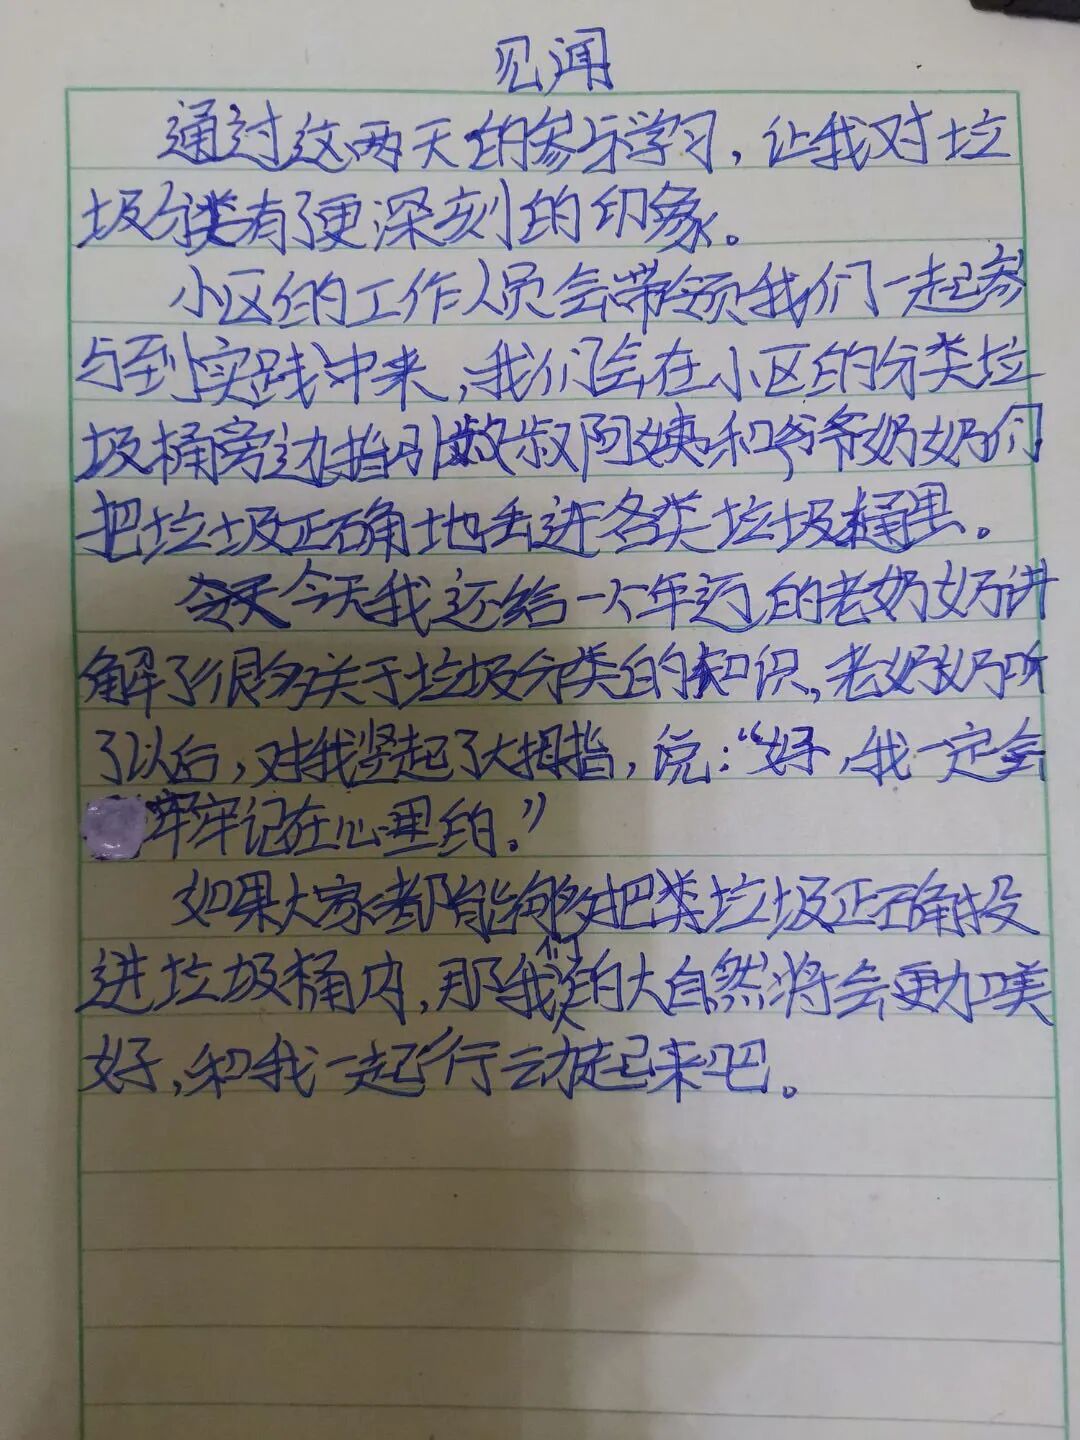 见闻
通过这两天的参与学习，让我对垃
圾分类有了更深刻的印象。
小区的工作人员会带领我们一起参
与到实践中来，我们会在小区的分类垃
圾桶旁边指引叔叔阿姨和爷爷奶奶们
把垃圾正确地丢进各类垃圾桶里。
今天我还给一个年迈的老奶奶讲
解了很多关于垃圾分类的知识，老奶奶听
了以后，对我竖起了大拇指，说：“好，我一定会
牢牢记在心里的。”
如果大家都能够把类垃圾正确投
进垃圾桶内，那我们的大自然将会更加美
好，和我一起行动起来吧。